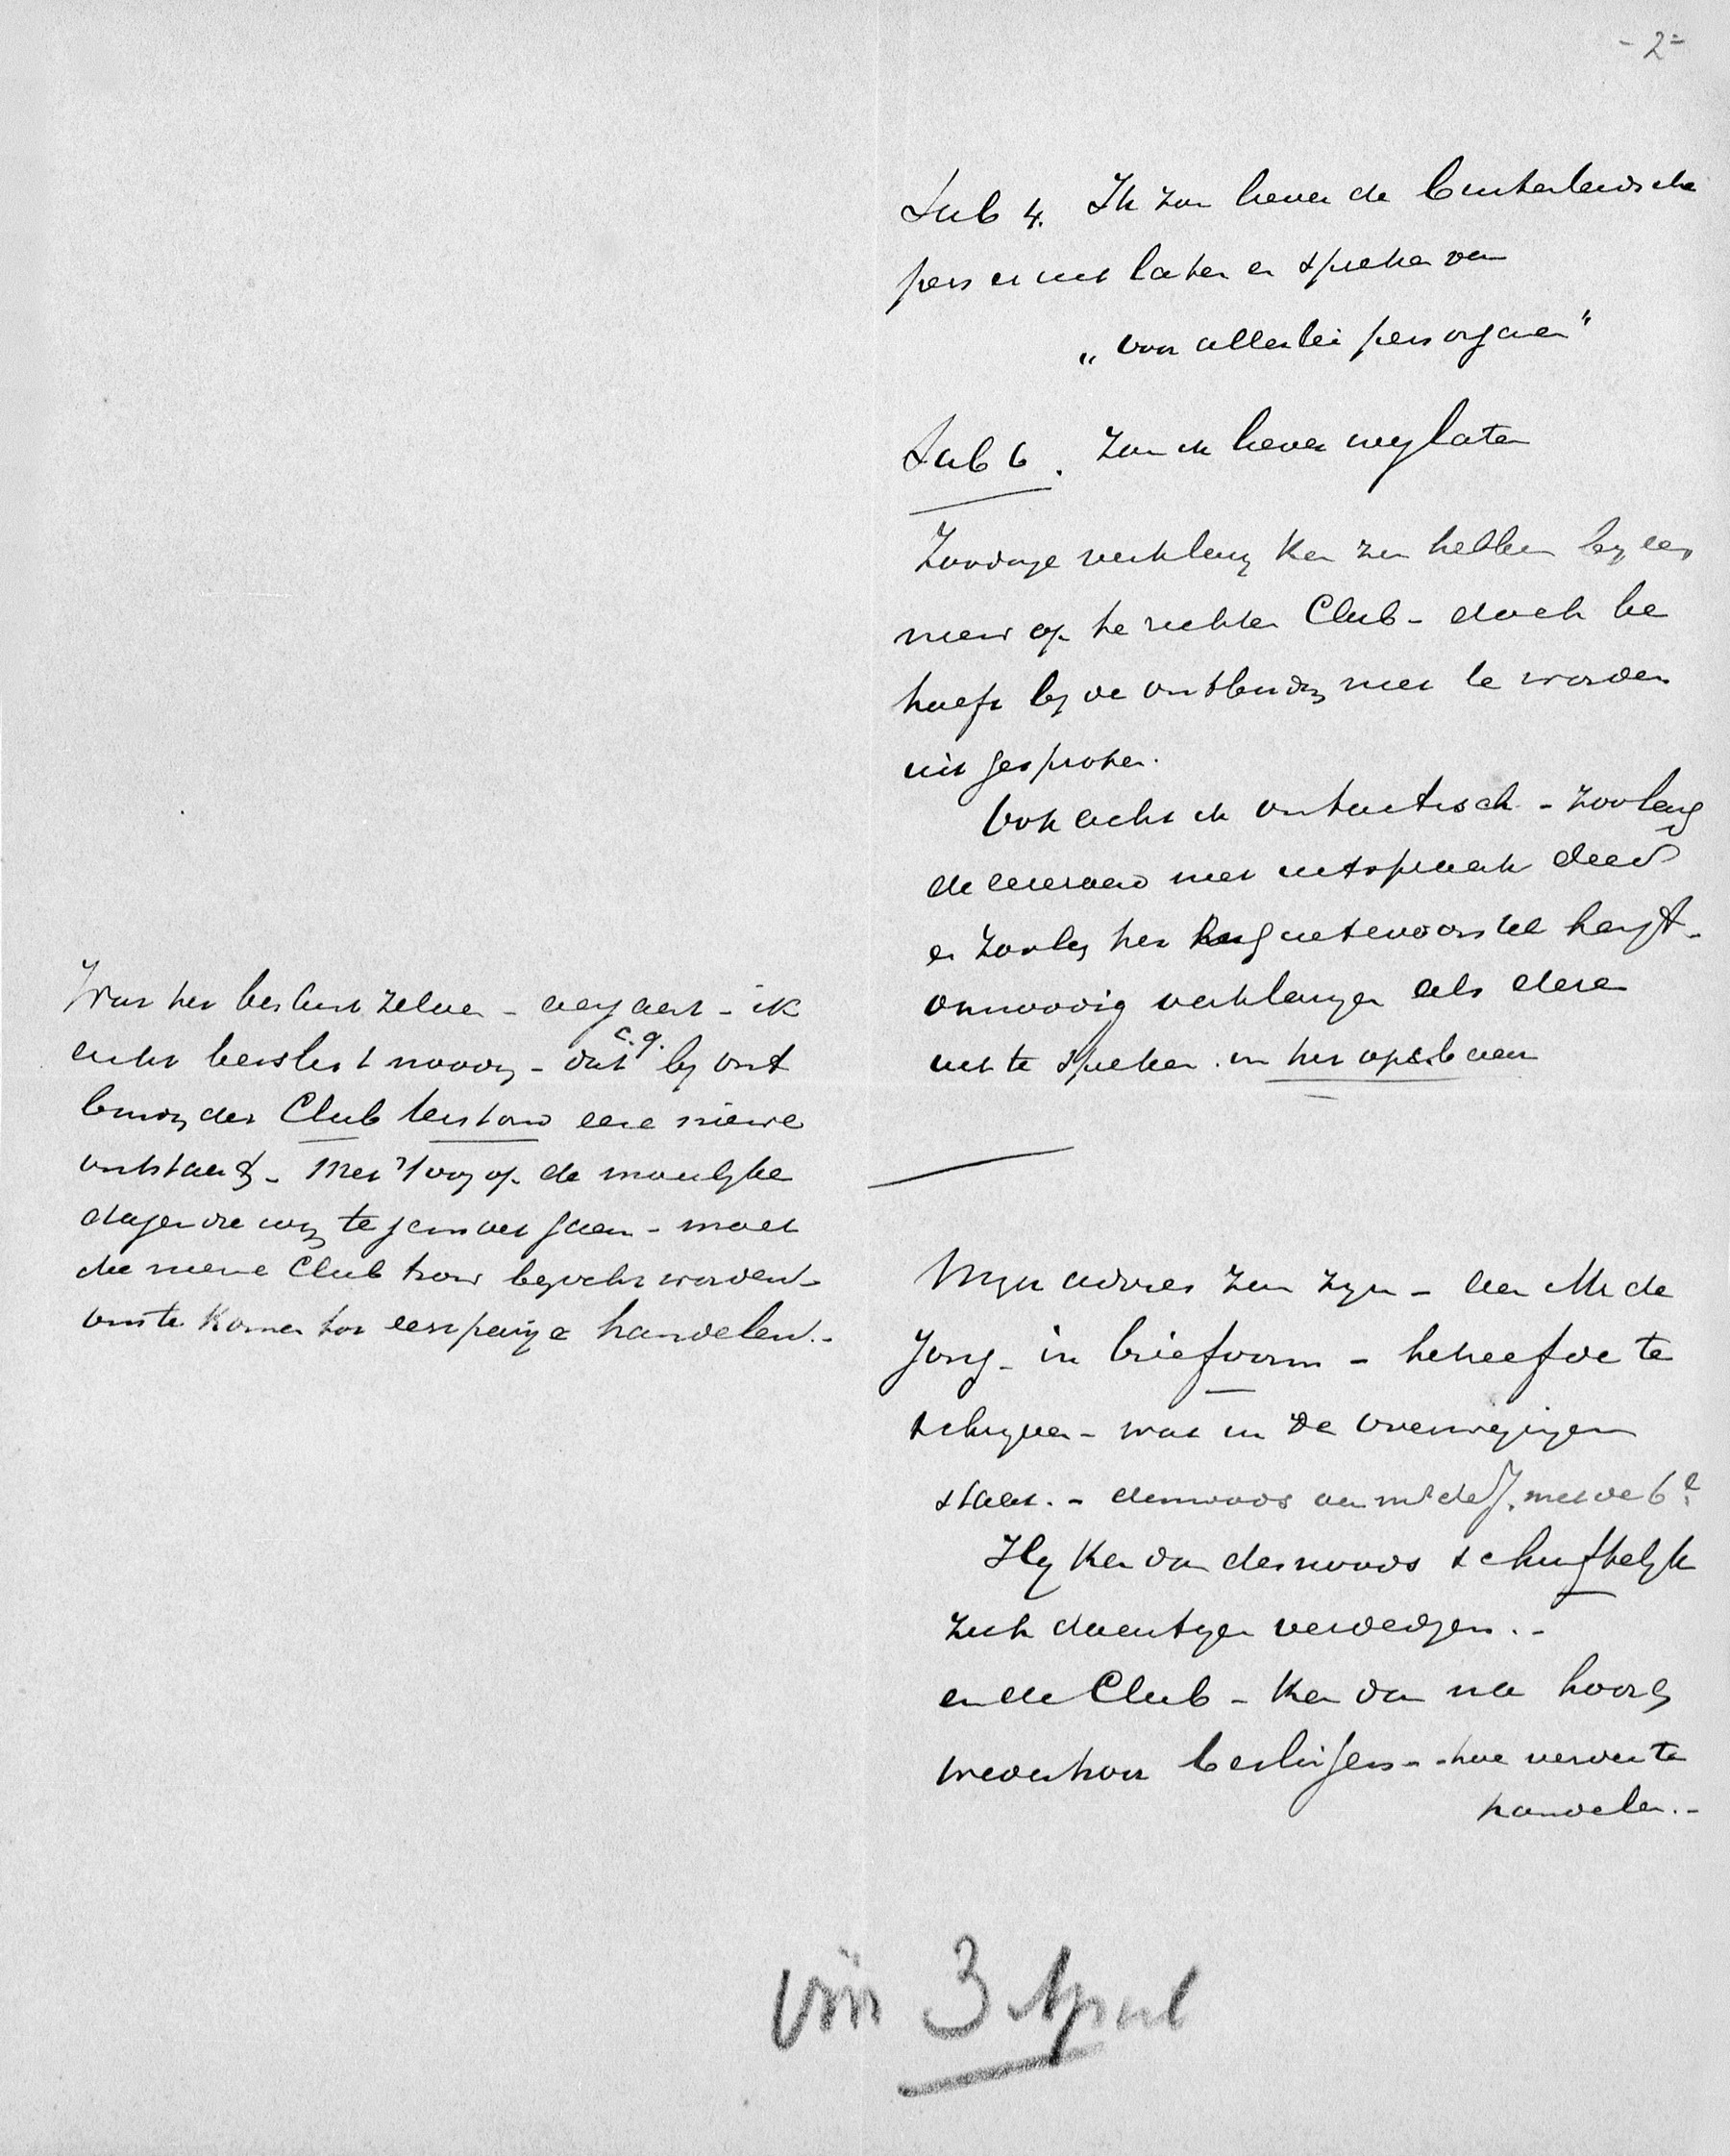 - 2 -
Sub 4. Ik zou liever de buitenlandsche
pers er uit laten en spreken van
„ voor allerlei persorganen "
Sub 6. Zou ik liever weglaten
Zoodanige verklaring kan zin hebben bij een
nieuw op te richten Club - doch be
hoeft bij de ontbinding niet te worden
uitgesproken.
Ook acht ik ontactisch - zoolang
de eereraad niet uitspraak deed
en zoolang het voorstel hangt -
onnoodig verklaringen als deze
uit te spreken in het openbaar
Mijn advies zou zijn - aan Mr de
Jong - in briefvorm - hetzelfde te
schrijven - wat in de overwegingen
staat. - desnoods aan Mr de J. met de 6e
Hij kan dan desnoods schriftelijk
zich daartegen verdedigen. -
en de Club - kan dan na hoor &
wederhoor beslissen - hoe verder te
handelen. -
Wat het besluit zelve - aangaat - ik
acht beslist noodig - dat c.q. bij ont
binding der Club terstond eene nieuwe
ontstaat - Met 't oog op de moeilijke
dagen die wij tegemoet gaan - moet
die nieuwe Club trouw bezocht worden -
om te komen tot eenparig handelen. -
vóór 3 April